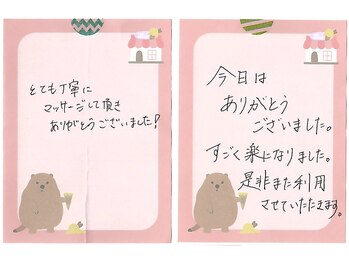 とても丁寧に
マッサージして頂き
ありがとうございました!
今日は
ありがとう
ございました。
すごく楽になりました。
是非また利用
させていただきます。